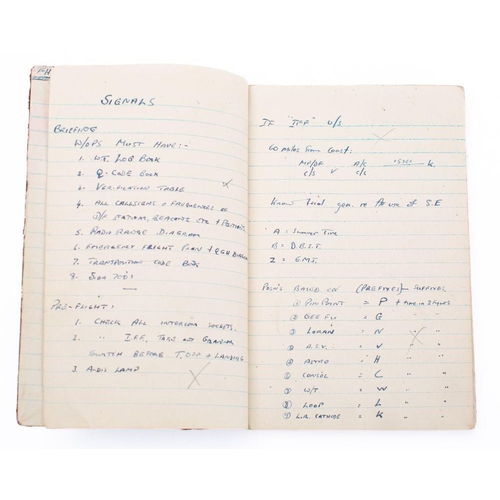 SIGNALS
BRIEFING
W/OPS MUST HAVE:-
1. W.T. LOG BOOK
2. Q-CODE BOOK
3. VERIFICATION TABLE
4. ALL CALLSIGNS & FREQUENCIES OF
D/F STATIONS, BEACONS ETC + POSITIONS
5. RADIO RANGE DIAGRAM
6. EMERGENCY FLIGHT PLAN & QGH DIAGRAM
7. TRANSPONDING CODE BOOK
8.
PRE-FLIGHT:
1. CHECK ALL INTERCOM SOCKETS.
2. " IFF, TAKE OUT
SWITCH BEFORE T.OFF & LANDING
3. ALDIS LAMP
IF "IFF" U/S
60 miles from Coast:
MF/DF A/C K.
C/S V C/S
re the use of S.E
A = Summer Time
B = D.B.S.T.
Z = G.M.T.
POSN'S BASED ON (PREFIXES) - SUFFIXES
① PIN POINT = P + time in 2 figures
② GEE FIX = G " "
③ LORAN = N " "
④ A.S.V. = V " "
⑤ ASTRO = H " "
⑥ CONSOL = C " "
⑦ W/T = W " "
⑧ LOOP = L " "
⑨ L.R. CATHODE = K " "